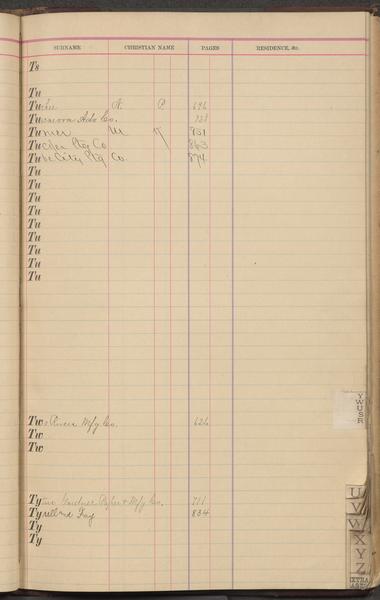 SURNAME CHRISTIAN NAME PAGES RESIDENCE, &c.
Ts
Tu
Tu A. P. 696
Tuscarora Adv Co. 728
Turner M 751
Tucker Ptg Co 863
Tube City Ptg Co. 874
Tu
Tu
Tu
Tu
Tu
Tu
Tu
Tu
Tu
Two Rivers Mfg Co. 626
Tw
Tw
Ty Gardner Paper & Mfg Co. 711
Tyrell and Fay 834
Ty
Ty
Y W U S R
U V W X Y Z
EXTRA